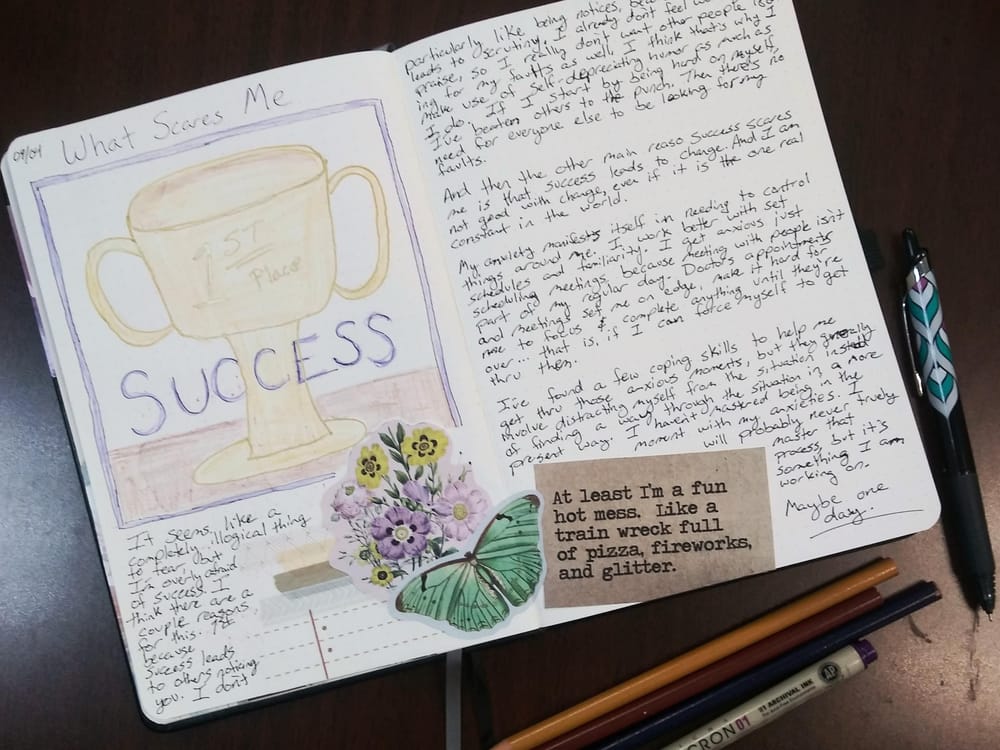 09/04
What Scares Me
1ST
Place
SUCCESS
It seems like a
completely illogical thing
to fear but
I'm overly afraid
of success. I
think there are a
couple reasons
for this. 1st
because
success leads
to others noticing
you. I don't
particularly like being notices,
leads to scrutiny. I already don't feel
praise, so I really don't want other people
ing for my faults as well. I think that's why I
make use of self-depreciating humor as much as
I do. If I start by being hard on myself,
I've beaten others to the punch. Then there's no
need for everyone else to be looking for my
faults.
And then the other main reaso success scares
me is that success leads to change. And I am
not good with change, even if it is the one real
constant in the world.
My anxiety manifests itself in needing to control
things around me. I work better with set
schedules and familiarity. I get anxious just
scheduling meetings because meeting with people isn't
part of my regular day. Doctor's appointments
and meetings set me on edge, make it hard for
me to focus & complete anything until they're
over... that is, if I can force myself to get
thru them.
I've found a few coping skills to help me
get thru those anxious moments, but they generally
involve distracting myself from the situation instead
of finding a way through the situation in a more
present way. I haven't mastered being in the
moment with my anxieties. I
will probably never truely
master that
process, but it's
something I am
working on.
Maybe one
day.
At least I'm a fun
hot mess. Like a
train wreck full
of pizza, fireworks,
and glitter.
CRON 01
01 ARCHIVAL INK
AP